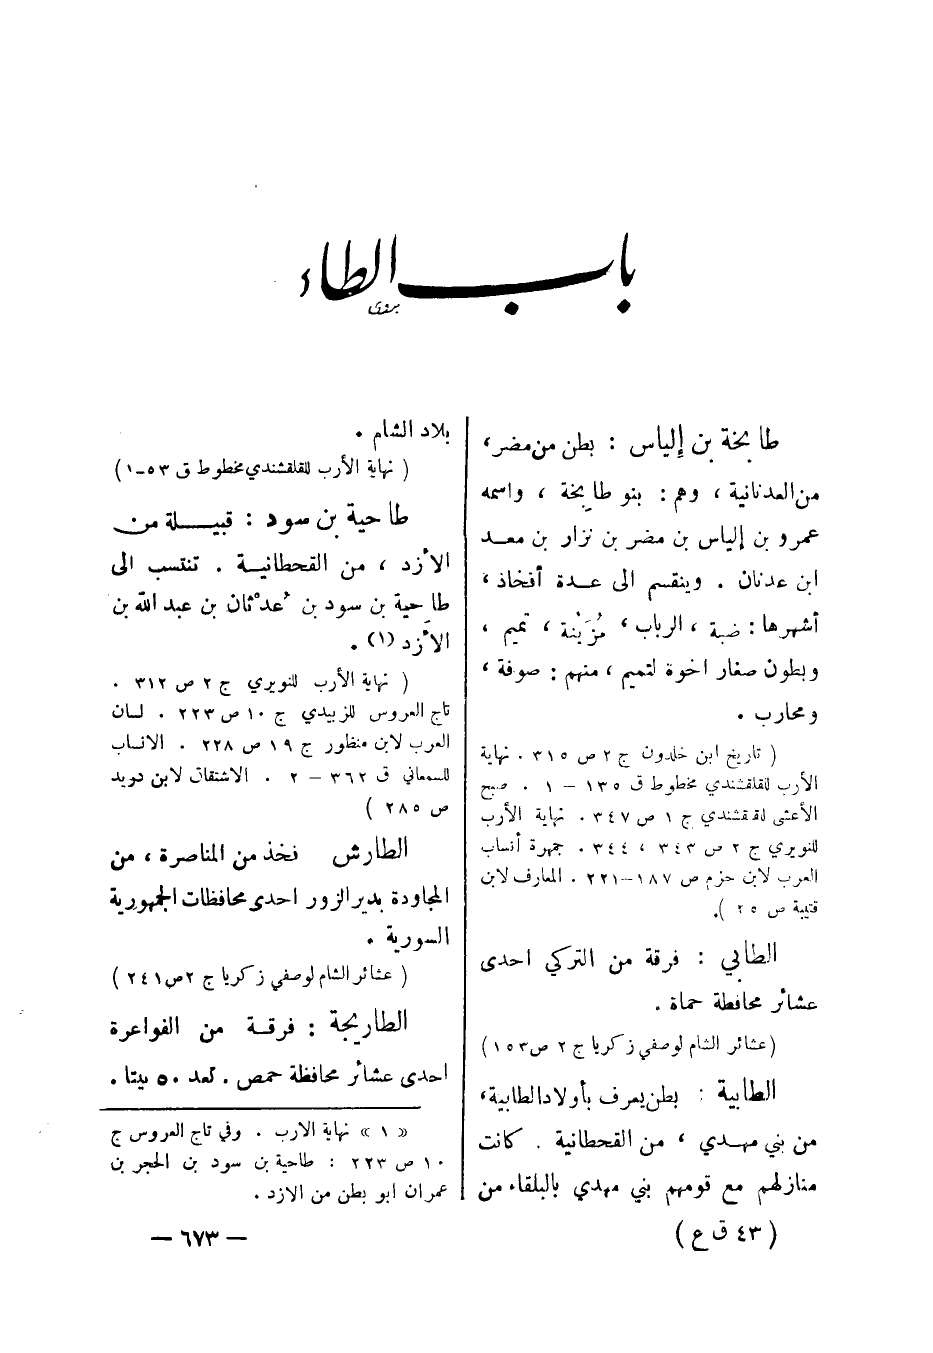 باب الطاء
طابخة بن إلياس : بطن من مضر ،
من العدنانية ، وهم : بنو طابخة ، واسمه
عمرو بن إلياس بن مضر بن نزار بن معد
ابن عدنان . وينقسم الى عدة أفخاذ ،
أشهرها : ضبة ، الرباب ، مُزَيْنة ، تميم ،
وبطون صغار اخوة لتميم ، منهم : صوفة ،
ومحارب .
( تاريخ ابن خلدون ج ٢ ص ٣١٥ . نهاية
الأرب للقلقشندي مخطوط ق ١٣٥ – ١ . صبح
الأعشى للقلقشندي ج ١ ص ٣٤٧ . نهاية الأرب
للنويري ج ٢ ص ٣٤٣ ، ٣٤٤ . جمهرة أنساب
العرب لابن حزم ص ١٨٧–٢٢١ . المعارف لابن
قتيبة ص ٢٥ ).
الطابي : فرقة من التركي احدى
عشائر محافظة حماة .
(عشائر الشام لوصفي زكريا ج ٢ ص ١٥٣)
الطابية : بطن يعرف بأولاد الطابية ،
من بني مهدي ، من القحطانية . كانت
منازلهم مع قومهم بني مهدي بالبلقاء من
بلاد الشام .
( نهاية الأرب للقلقشندي مخطوط ق ٥٣–١)
طاحية بن سود : قبيلة من
الأزد ، من القحطانية . تنتسب الى
طاحية بن سود بن عُدْثان بن عبد الله بن
الأزد (١) .
( نهاية الأرب للنويري ج ٢ ص ٣١٢ .
تاج العروس للزبيدي ج ١٠ ص ٢٢٣ . لسان
العرب لابن منظور ج ١٩ ص ٢٢٨ . الانساب
للسمعاني ق ٣٦٢ – ٢ . الاشتقاق لابن دريد
ص ٢٨٥ )
الطارش فخذ من المناصرة ، من
المجاودة بدير الزور احدى محافظات الجمهورية
السورية .
( عشائر الشام لوصفي زكريا ج ٢ ص ٢٤١ )
الطاريحة : فرقة من الفواعرة
احدى عشائر محافظة حمص . تعد ٥٠ بيتا .
« ١ » نهاية الارب . وفي تاج العروس ج
١٠ ص ٢٢٣ : طاحية بن سود بن الحجر بن
عمران ابو بطن من الازد .
( ٤٣ ق ع )
– ٦٧٣ –